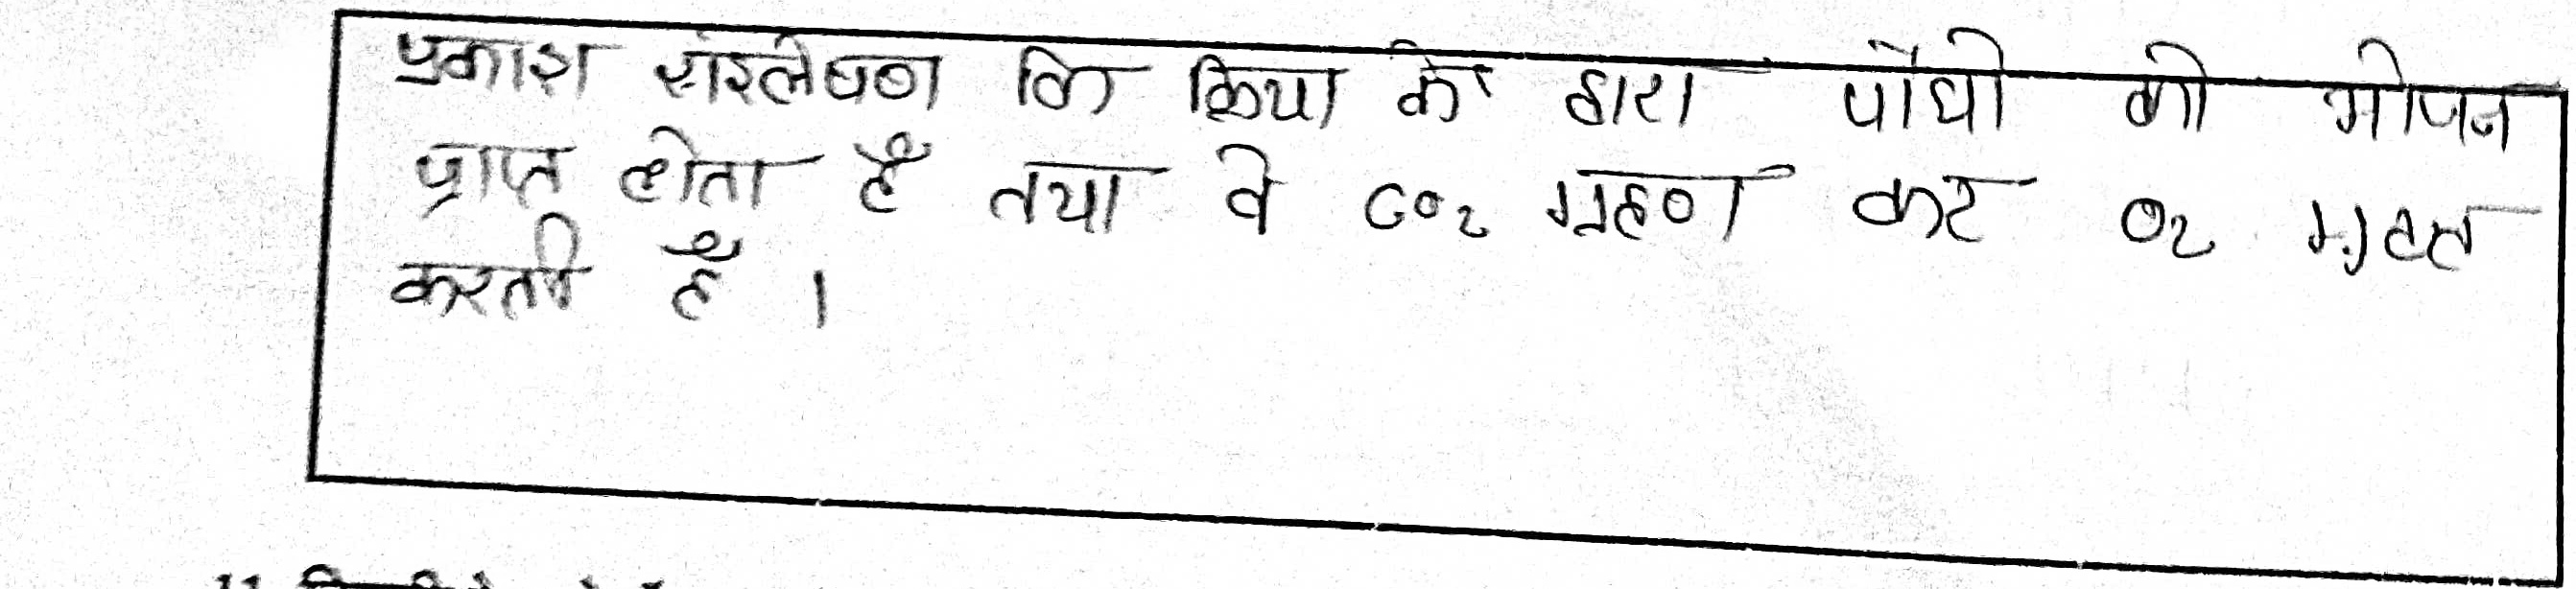 प्रकाश संश्लेषण कि क्रिया के द्वारा पौधो को भोजन
प्राप्त होता है तथा वे CO₂ ग्रहण कर O₂ मुक्त
करती है ।